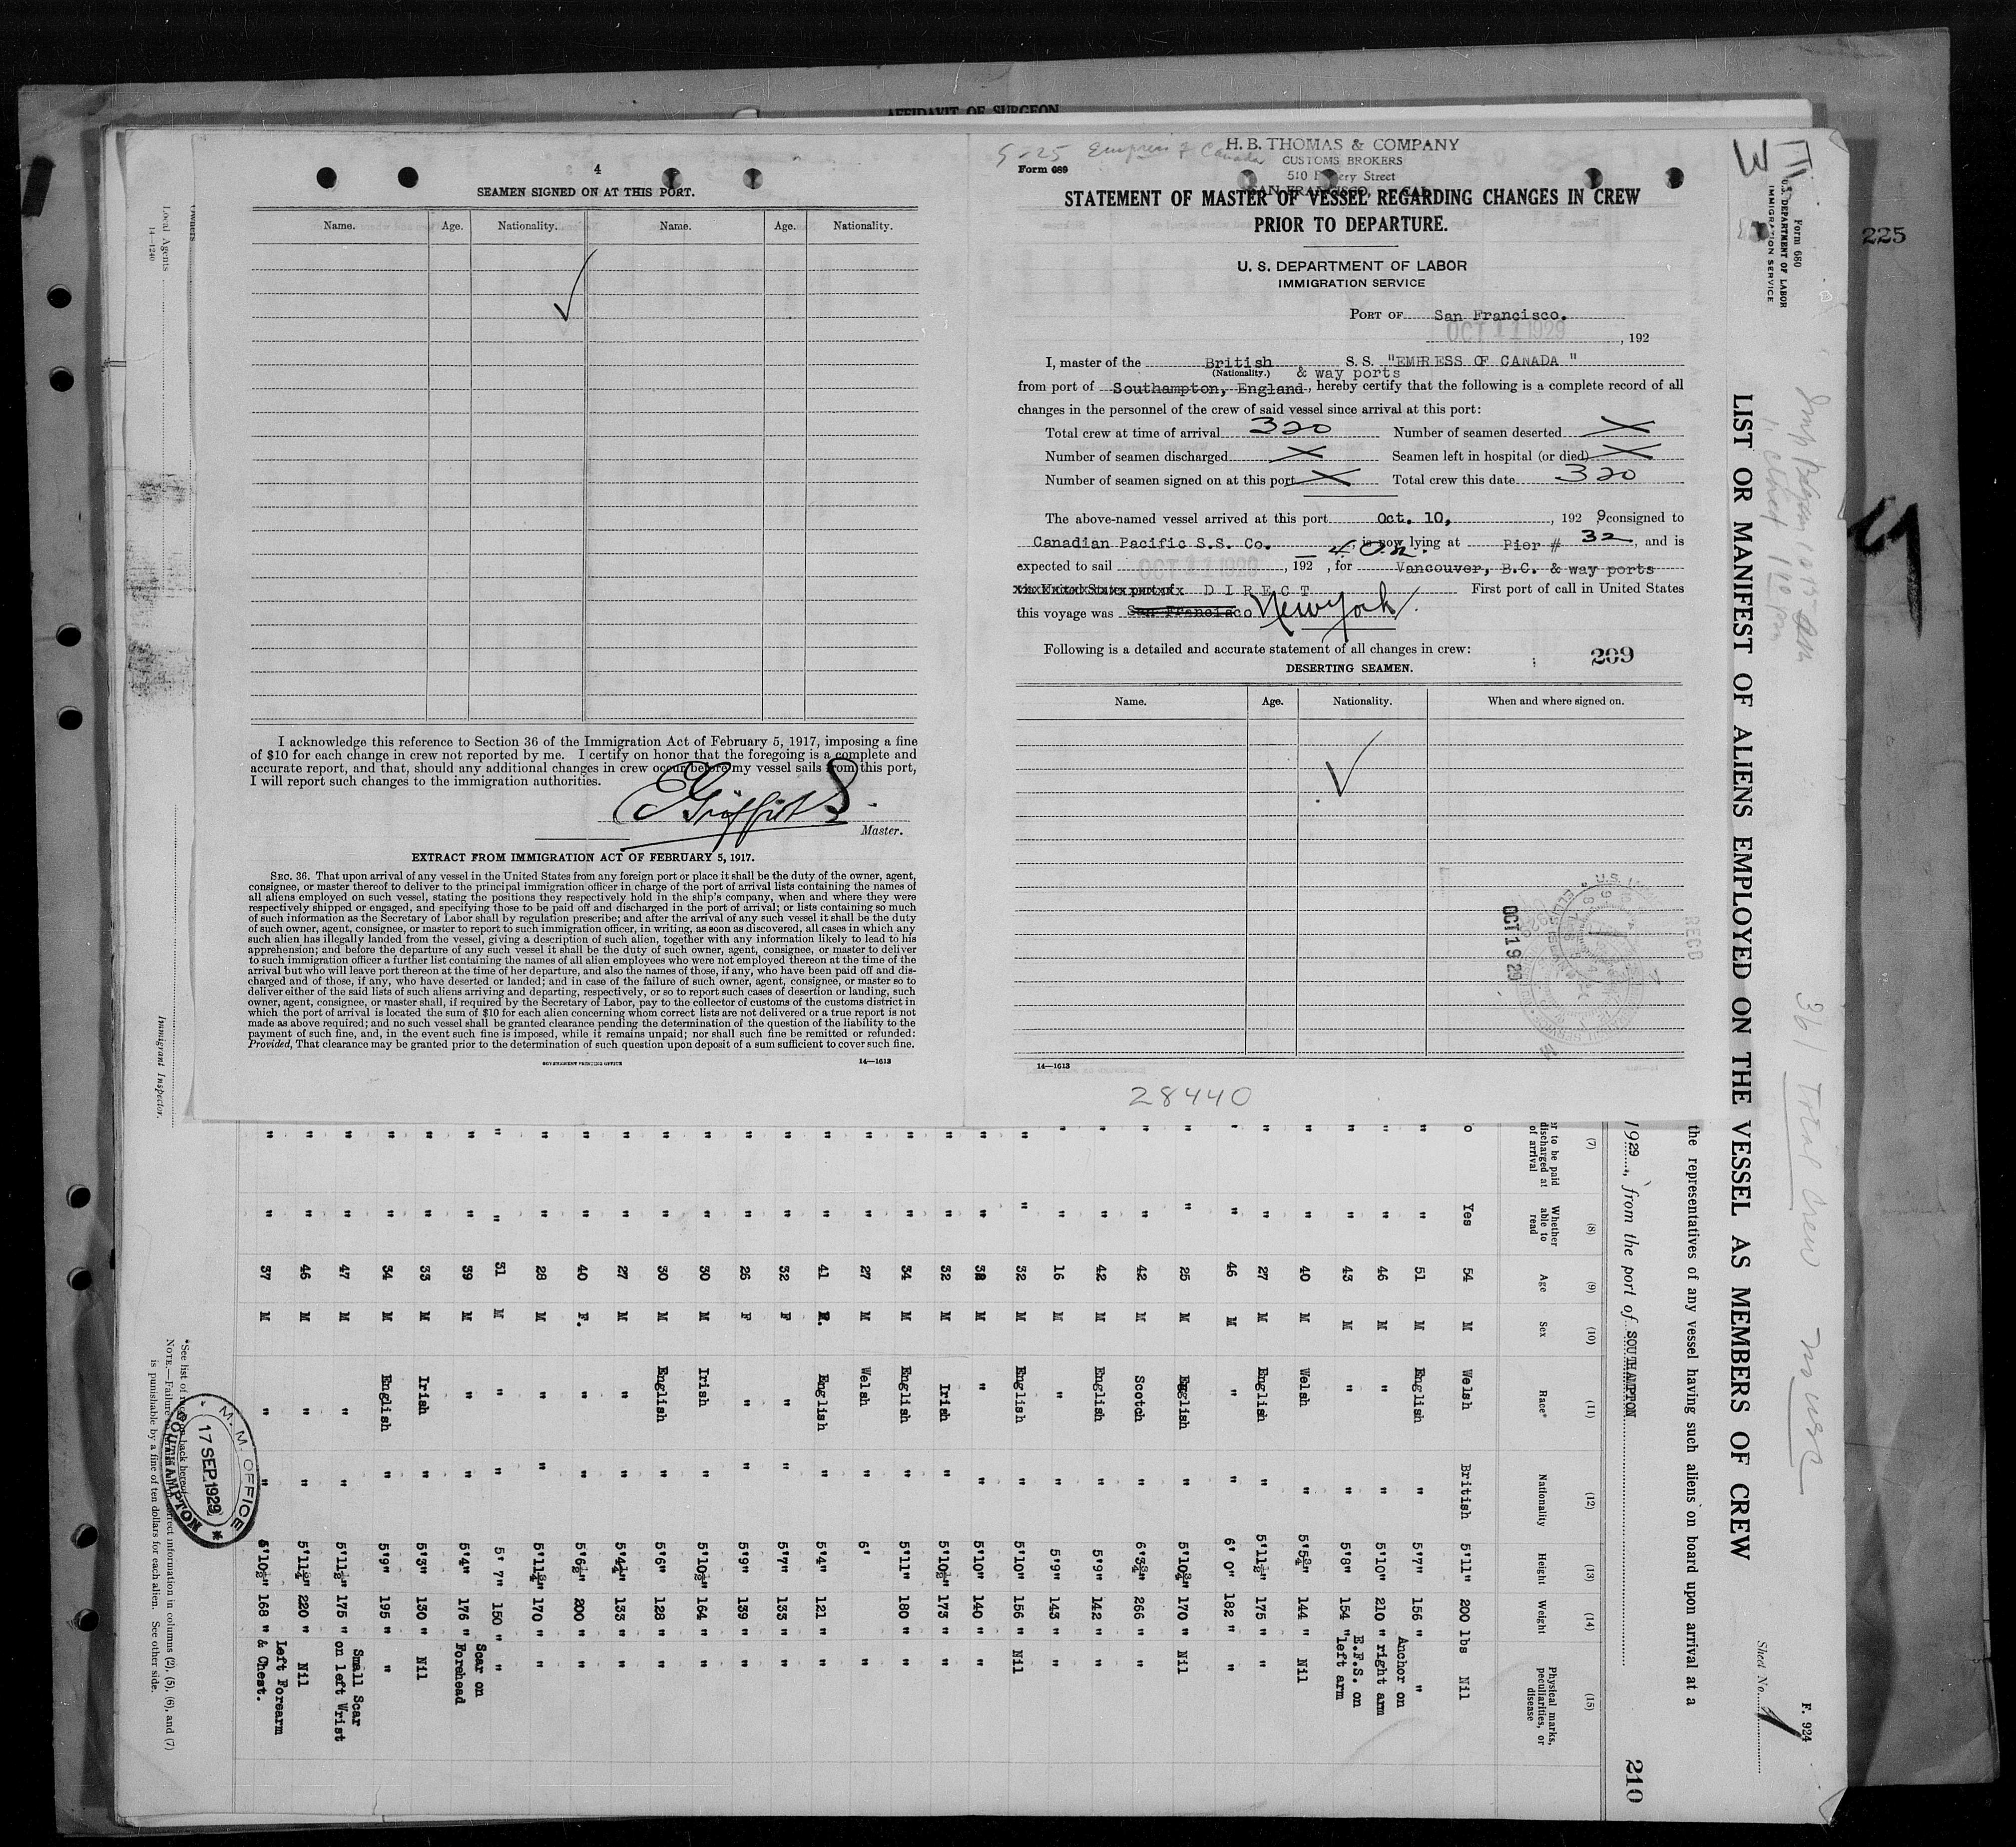 AFFIDAVIT OF SURGEON
225
4
SEAMEN SIGNED ON AT THIS PORT.
Name. Age. Nationality. Name. Age. Nationality.
I acknowledge this reference to Section 36 of the Immigration Act of February 5, 1917, imposing a fine
of $10 for each change in crew not reported by me. I certify on honor that the foregoing is a complete and
accurate report, and that, should any additional changes in crew occur before my vessel sails from this port,
I will report such changes to the immigration authorities.
E Griffiths
Master.
EXTRACT FROM IMMIGRATION ACT OF FEBRUARY 5, 1917.
SEC. 36. That upon arrival of any vessel in the United States from any foreign port or place it shall be the duty of the owner, agent,
consignee, or master thereof to deliver to the principal immigration officer in charge of the port of arrival lists containing the names of
all aliens employed on such vessel, stating the positions they respectively hold in the ship's company, when and where they were
respectively shipped or engaged, and specifying those to be paid off and discharged in the port of arrival; or lists containing so much
of such information as the Secretary of Labor shall by regulation prescribe; and after the arrival of any such vessel it shall be the duty
of such owner, agent, consignee, or master to report to such immigration officer, in writing, as soon as discovered, all cases in which any
such alien has illegally landed from the vessel, giving a description of such alien, together with any information likely to lead to his
apprehension; and before the departure of any such vessel it shall be the duty of such owner, agent, consignee, or master to deliver
to such immigration officer a further list containing the names of all alien employees who were not employed thereon at the time of the
arrival but who will leave port thereon at the time of her departure, and also the names of those, if any, who have been paid off and dis-
charged and of those, if any, who have deserted or landed; and in case of the failure of such owner, agent, consignee, or master so to
deliver either of the said lists of such aliens arriving and departing, respectively, or so to report such cases of desertion or landing, such
owner, agent, consignee, or master shall, if required by the Secretary of Labor, pay to the collector of customs of the customs district in
which the port of arrival is located the sum of $10 for each alien concerning whom correct lists are not delivered or a true report is not
made as above required; and no such vessel shall be granted clearance pending the determination of the question of the liability to the
payment of such fine, and, in the event such fine is imposed, while it remains unpaid; nor shall such fine be remitted or refunded:
Provided, That clearance may be granted prior to the determination of such question upon deposit of a sum sufficient to cover such fine.
GOVERNMENT PRINTING OFFICE 14—1613
5-25 Empress of Canada
H. B. THOMAS & COMPANY
CUSTOMS BROKERS
510 Battery Street
SAN FRANCISCO, CAL.
Form 689
STATEMENT OF MASTER OF VESSEL REGARDING CHANGES IN CREW
PRIOR TO DEPARTURE.
U. S. DEPARTMENT OF LABOR
IMMIGRATION SERVICE
PORT OF San Francisco.
OCT 11 1929 , 192
I, master of the British S. S. "EMPRESS OF CANADA"
(Nationality.) & way ports
from port of Southampton, England, hereby certify that the following is a complete record of all
changes in the personnel of the crew of said vessel since arrival at this port:
Total crew at time of arrival 320 Number of seamen deserted X
Number of seamen discharged X Seamen left in hospital (or died) X
Number of seamen signed on at this port X Total crew this date 320
The above-named vessel arrived at this port Oct. 10, , 192 9, consigned to
Canadian Pacific S.S. Co. , is now lying at Pier # 32, and is
expected to sail OCT 11 1929 , 192 , for Vancouver, B.C. & way ports
via United States port of DIRECT First port of call in United States
this voyage was San Francisco New York.
Following is a detailed and accurate statement of all changes in crew:
209
DESERTING SEAMEN.
Name. Age. Nationality. When and where signed on.
OCT 19 29
RECD
14—1613
28440
Form 680
U.S. DEPARTMENT OF LABOR
IMMIGRATION SERVICE
LIST OR MANIFEST OF ALIENS EMPLOYED ON THE VESSEL AS MEMBERS OF CREW
361 Total Crew
F. 924
Sheet No. 1
the representatives of any vessel having such aliens on board upon arrival at a
1929, from the port of SOUTHAMPTON
210
(7) (8) (9) (10) (11) (12) (13) (14) (15)
r to be paid discharged at of arrival Whether able to read Age Sex Race* Nationality Height Weight Physical marks, peculiarities, or disease
o Yes 54 M Welsh British 5'11" 200 lbs Nil
" " 51 M English " 5'7" 156 " "
" " 46 M " " 5'10" 210 " Anchor on right arm
" " 43 M " " 5'8" 154 " E.F.S. on left arm
" " 40 M Welsh " 5'5¾" 144 " Nil
" " 27 M English " 5'11½" 175 " "
" " 46 M " " 6' 0" 182 " "
" " 25 M English " 5'10¾" 170 " Nil
" " 42 M Scotch " 6'3¾" 266 " "
" " 42 M English " 5'9" 142 " "
" " 16 M " " 5'9" 143 " "
" " 32 M English " 5'10" 156 " Nil
" " 38 M " " 5'10" 140 " "
" " 32 M Irish " 5'10½" 173 " "
" " 34 M English " 5'11" 180 " "
" " 27 M Welsh " 6' "
" " 41 F. English " 5'4" 121 " "
" " 32 F " " 5'7" 133 " "
" " 26 F " " 5'9" 139 " "
" " 30 M Irish " 5'10½" 164 " "
" " 30 M English " 5'6" 128 " "
" " 27 M " " 5'4½" 133 " "
" " 40 F. " " 5'6½" 200 " "
" " 28 M " " 5'11¾" 170 " "
" " 31 M " " 5' 7" 150 " "
" " 39 M " " 5'4" 176 " Scar on Forehead
" " 33 M Irish " 5'3" 130 " Nil
" " 34 M English " 5'9" 195 " "
" " 47 M " " 5'11½" 175 " Small Scar on left Wrist
" " 46 M " " 5'11½" 220 " Nil
" " 37 M " " 5'10½" 168 " Left Forearm & Chest.
*See list of races on back hereof.
NOTE.—Failure to furnish correct information in columns (2), (5), (6), and (7)
is punishable by a fine of ten dollars for each alien. See other side.
M. M. OFFICE
17 SEP. 1929
SOUTHAMPTON
Owners
Local Agents
14—1240
Immigrant Inspector.